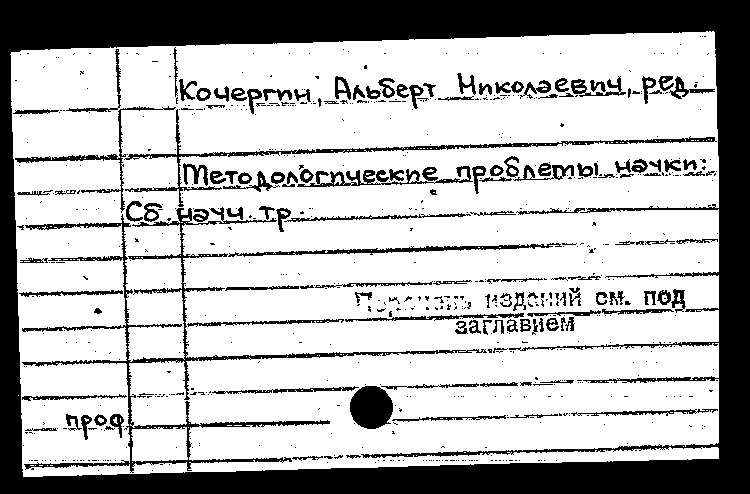 Кочергин, Альберт Николаевич, ред.
Методологические проблемы науки:
Сб. науч. тр.
Перечень изданий см. под
заглавием
проф.